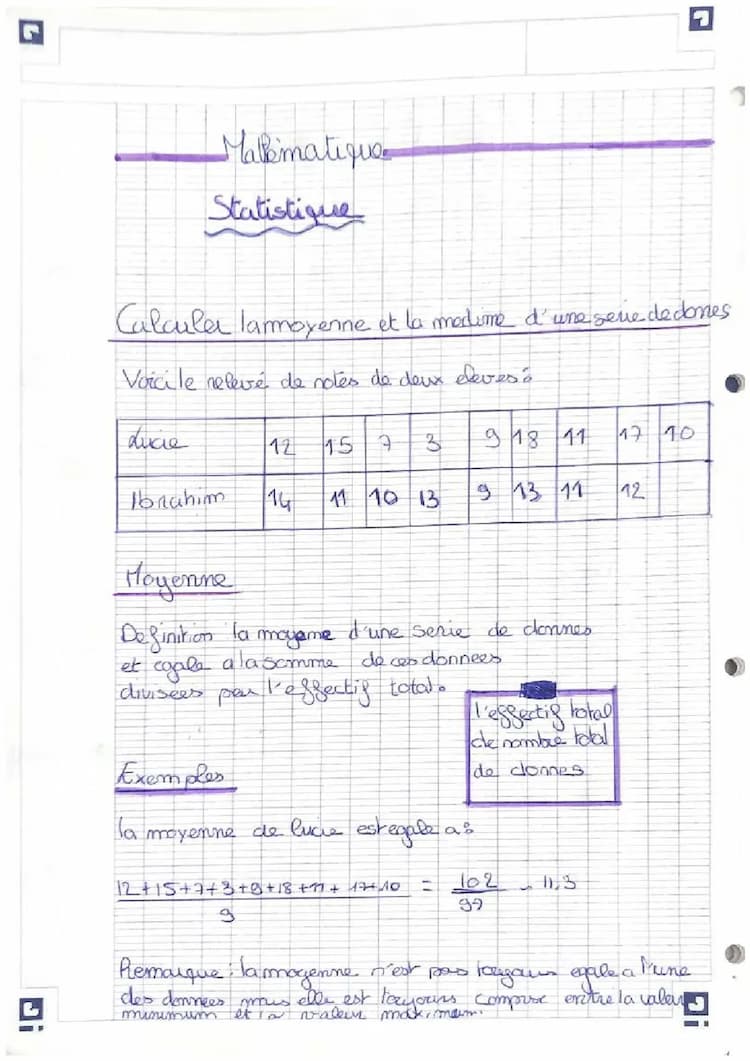 Mathématique
Statistique
Calculer la moyenne et la medime d'une serie de donnes
Voici le relevé de notes de deux eleves :
Lucie 12 15 7 3 9 18 11 17 10
Ibrahim 14 11 10 13 9 13 11 12
Moyenne
Definition la moyenne d'une serie de donnes
et egale a la somme de ces donnees
divisées par l'effectif total.
l'effectif total
de nombre total
de donnes
Exemples
la moyenne de lucie est egale a :
12+15+7+3+9+18+11+17+10 = 102
9
11,3
Remarque : la moyenne n'est pas toujours egale a l'une
des donnees mais elle est toujours comprise entre la valeur
minimum et la valeur maximum.